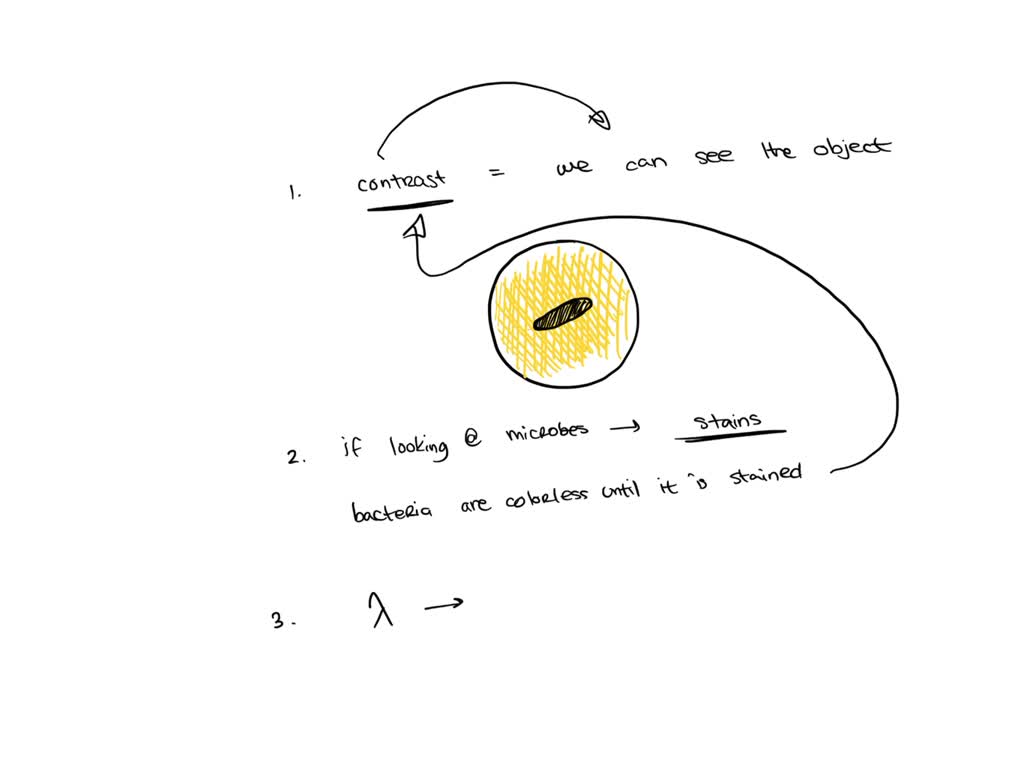 1. contrast = we can see the object
2. if looking @ microbes → stains
bacteria are colorless until it is stained
3. λ →